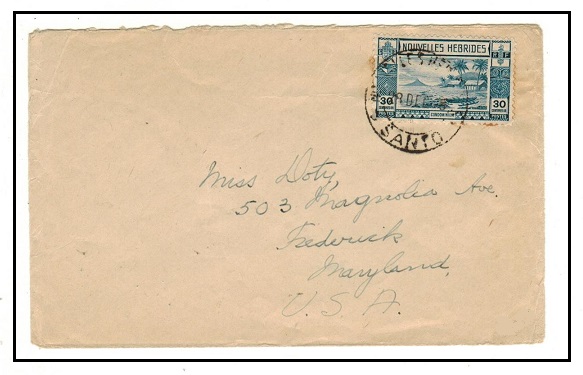 NOUVELLES HEBRIDES
30 30
SANTO
Miss Doty,
503 Magnolia Ave.
Frederick
Maryland,
U. S. A.